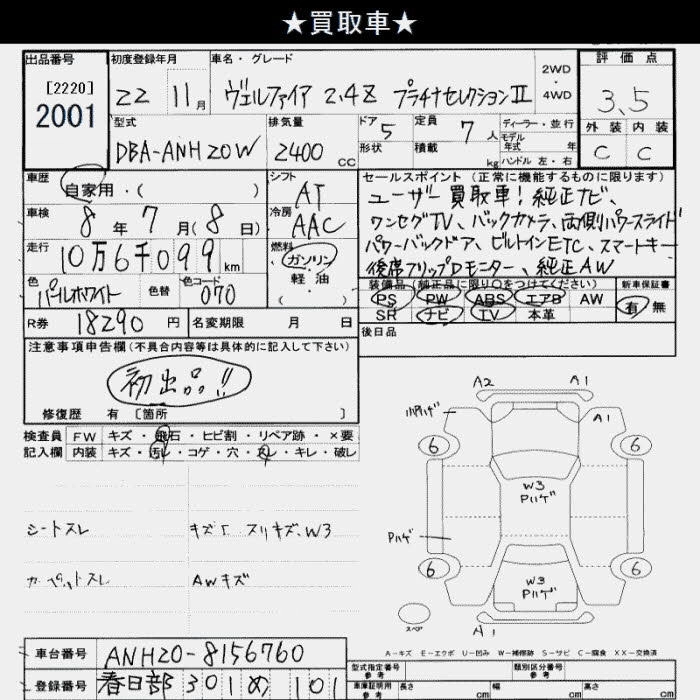 ★買取車★
出品番号
[2220]
2001
初度登録年月
22 11月
車名・グレード
ヴェルファイア 2.4Z プラチナセレクションⅡ
2WD
4WD
評価点
3.5
外装 内装
C C
型式
DBA-ANH20W
排気量
2400 CC
ドア 5
形状
定員 7 人
積載 kg
ディーラー・並行
モデル
年式 年
ハンドル 左・右
車歴
自家用・( )
シフト
AT
車検
8年 7月(8日)
冷房
AAC
走行
10万6千099 km
燃料
ガソリン
軽・油
( )
色
パールホワイト
色替
色コード
070
R券 18290 円
名変期限 月 日
セールスポイント(正常に機能するものに限ります)
ユーザー買取車!純正ナビ、
ワンセグTV、バックカメラ、両側パワースライド
パワーバックドア、ビルトインETC、スマートキー
後席フリップDモニター、純正AW
装備品(純正品に限り○をつけてください)
PS PW ABS エアB AW
SR ナビ TV 本革
新車保証書
有 無
後日品
注意事項申告欄(不具合内容等は具体的に記入して下さい)
初出品!!
修復歴 有 [箇所 ]
検査員
記入欄
FW キズ・飛石・ヒビ割・リペア跡・×要
内装 キズ・汚レ・コゲ・穴・スレ・キレ・破レ
シートスレ
キズエ スリキズ、W3
カーペットスレ
AWキズ
A2 A1
A1
6 6
W3
Pハゲ
Pハゲ
6 6
W3
Pハゲ
スペア
A1
A-キズ E-エクボ U-凹み W-補修跡 S-サビ C-腐食 XX-交換済
車台番号 ANH20-8156760
登録番号 春日部 301 め 101
型式指定番号
参考
類別区分番号
参考
車庫証明用
参考
長さ cm
幅 cm
高さ cm